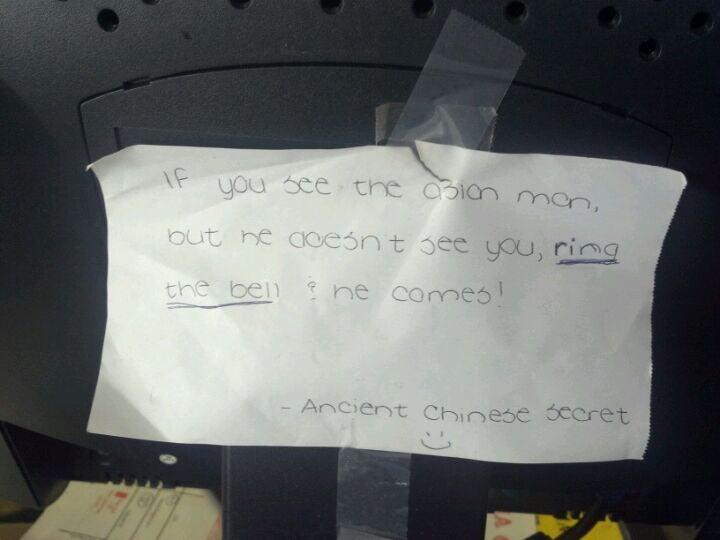 If you see the asian man,
but he doesn't see you, ring
the bell & he comes!
- Ancient Chinese secret